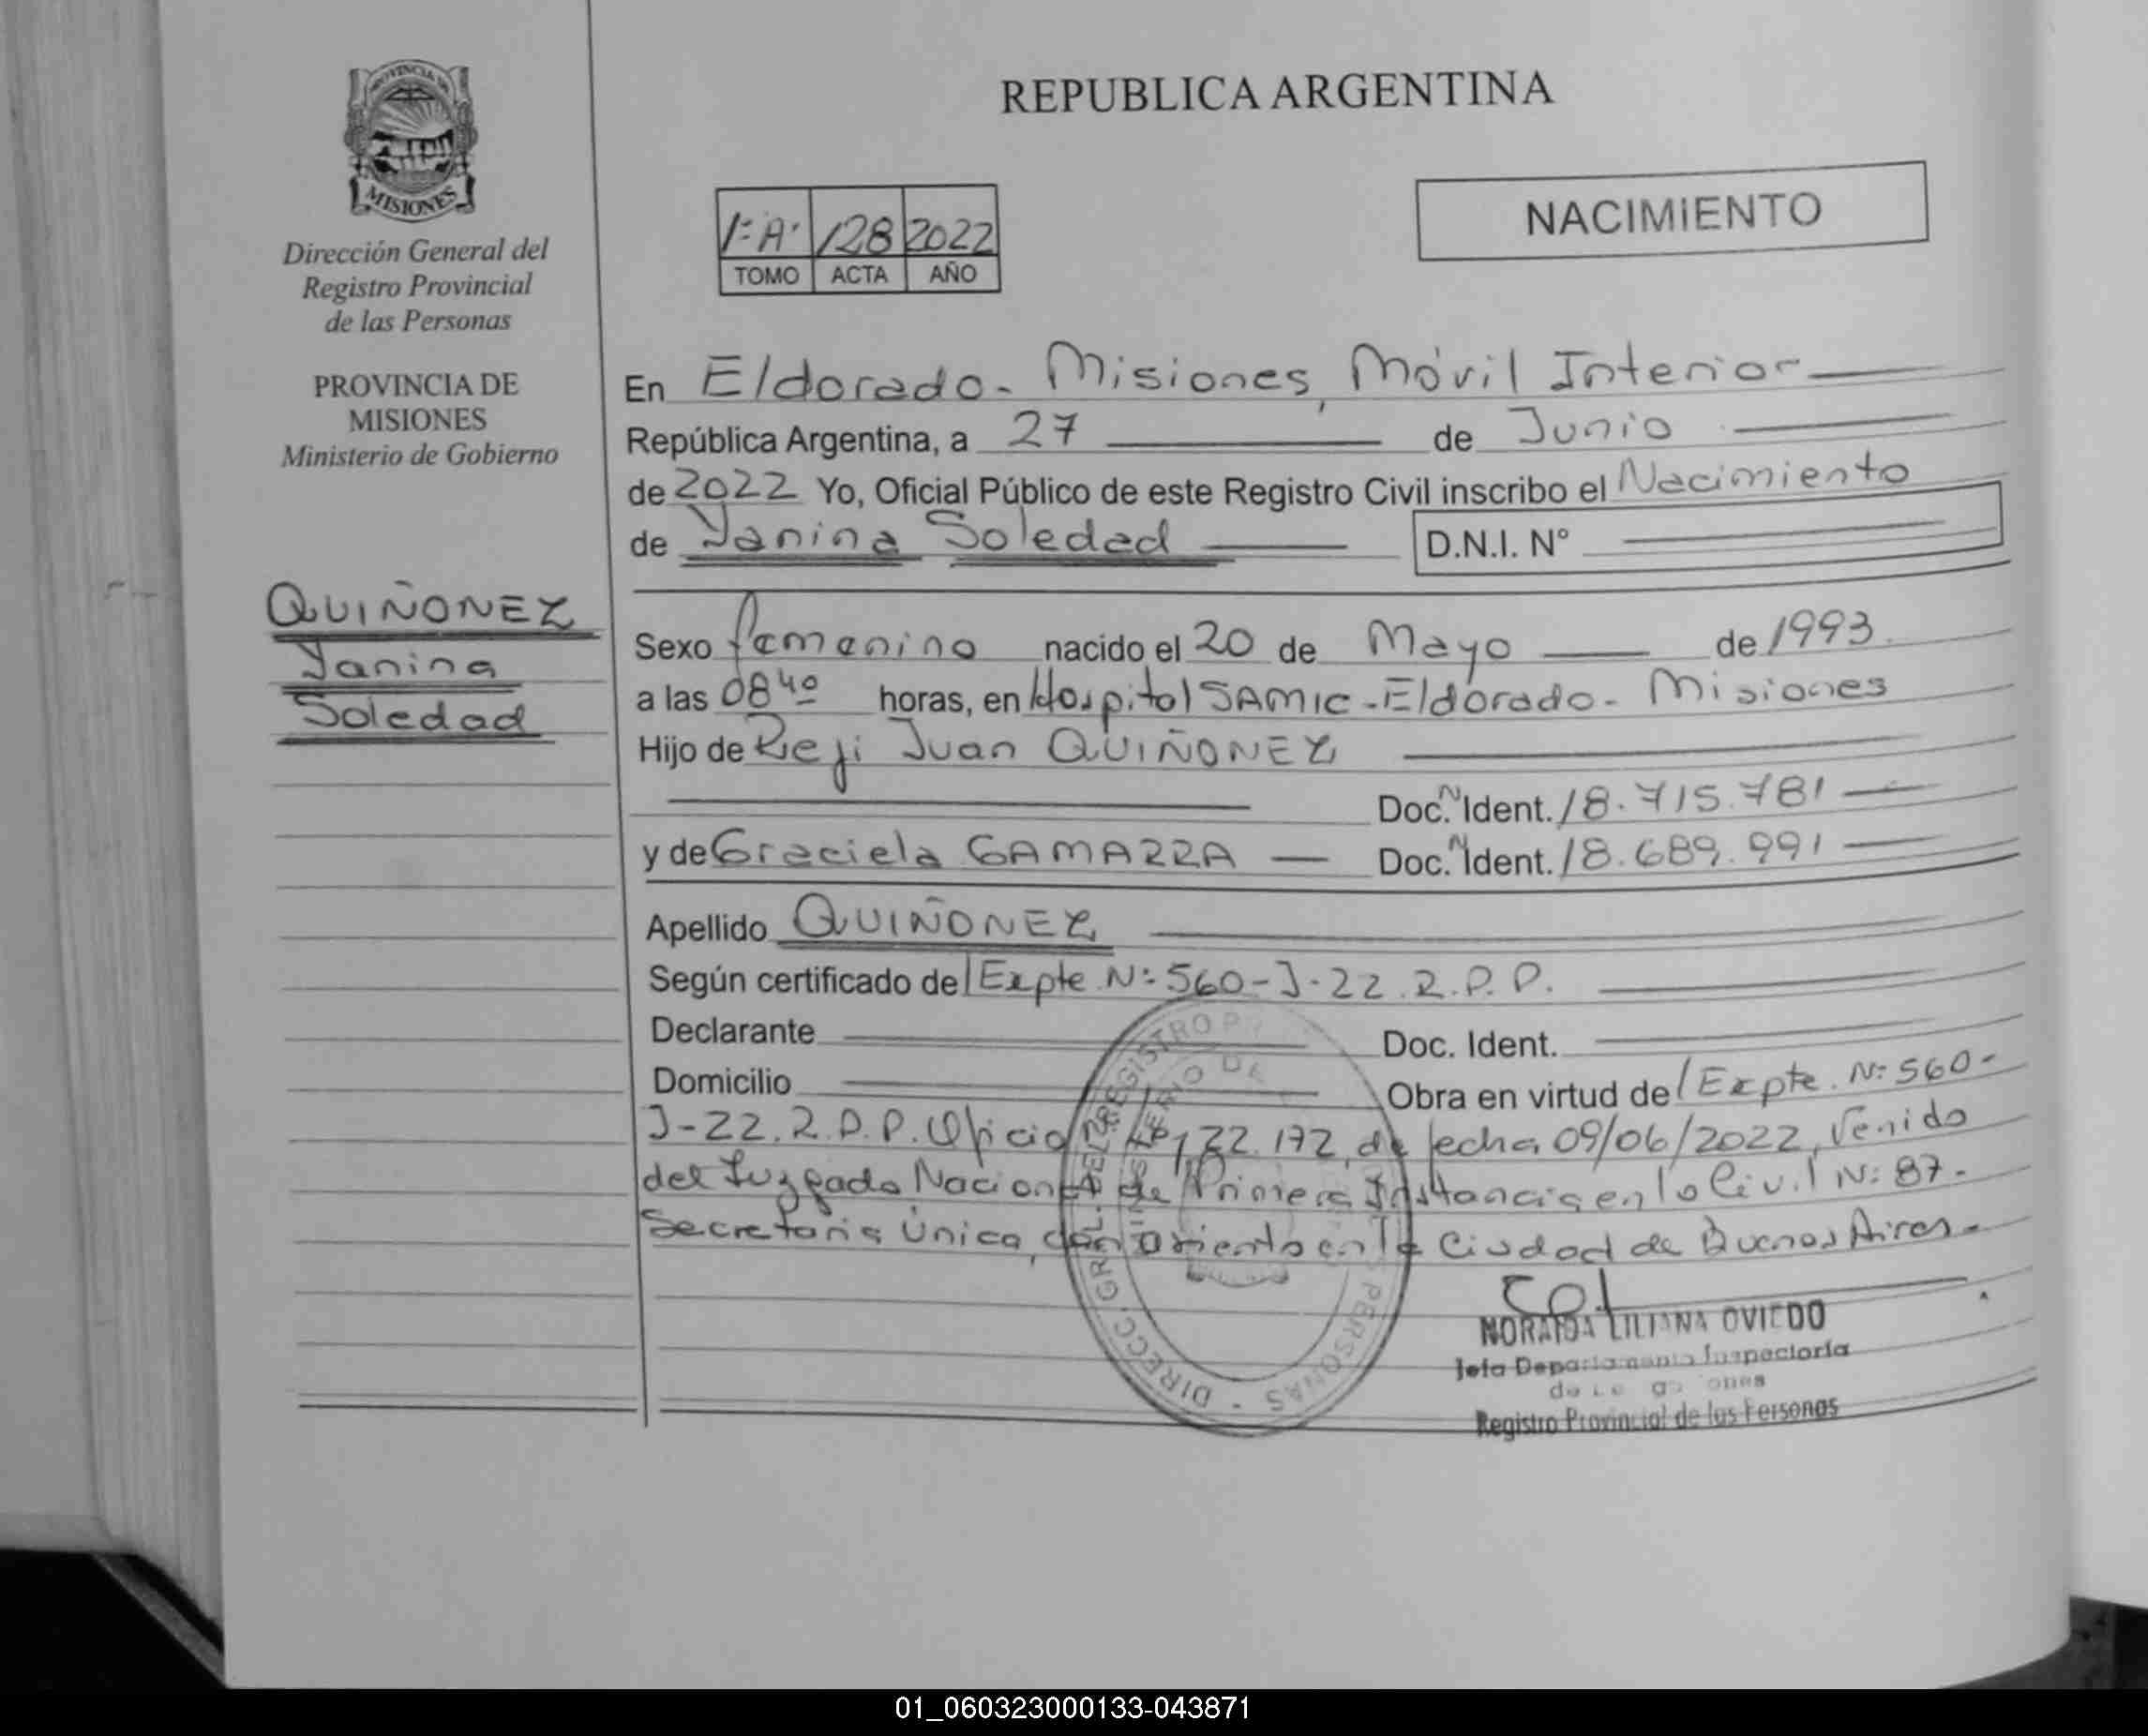 PROVINCIA DE
MISIONES
Dirección General del
Registro Provincial
de las Personas
PROVINCIA DE
MISIONES
Ministerio de Gobierno
QUIÑONEZ
Yanina
Soledad
REPUBLICA ARGENTINA
1º A· 128 2022
TOMO ACTA AÑO
NACIMIENTO
En Eldorado - Misiones, Móvil Interior
República Argentina, a 27 de Junio
de 2022 Yo, Oficial Público de este Registro Civil inscribo el Nacimiento
de Yanina Soledad D.N.I. N°
Sexo femenino nacido el 20 de Mayo de 1993
a las 08 40 horas, en Hospital SAMIC - Eldorado - Misiones
Hijo de Reji Juan QUIÑONEZ
Doc. N Ident. 18.715.781
y de Graciela GAMARRA Doc. N Ident. 18.689.991
Apellido QUIÑONEZ
Según certificado de Expte Nº 560-J-22.R.P.P.
Declarante Doc. Ident.
Domicilio Obra en virtud de Expte. Nº 560-
J-22.R.P.P. Oficio de fecha 09/06/2022, venido
del Juzgado Nacional de Primera Instancia en lo Civil Nº 87-
Secretaría Única, con asiento en la Ciudad de Buenos Aires-
DIRECC. GRAL. DEL REGISTRO PERSONAS
NORAIDA LILIANA OVIEDO
Jefa Departamento Inspectoría
Registro Provincial de las Personas
01_060323000133-043871